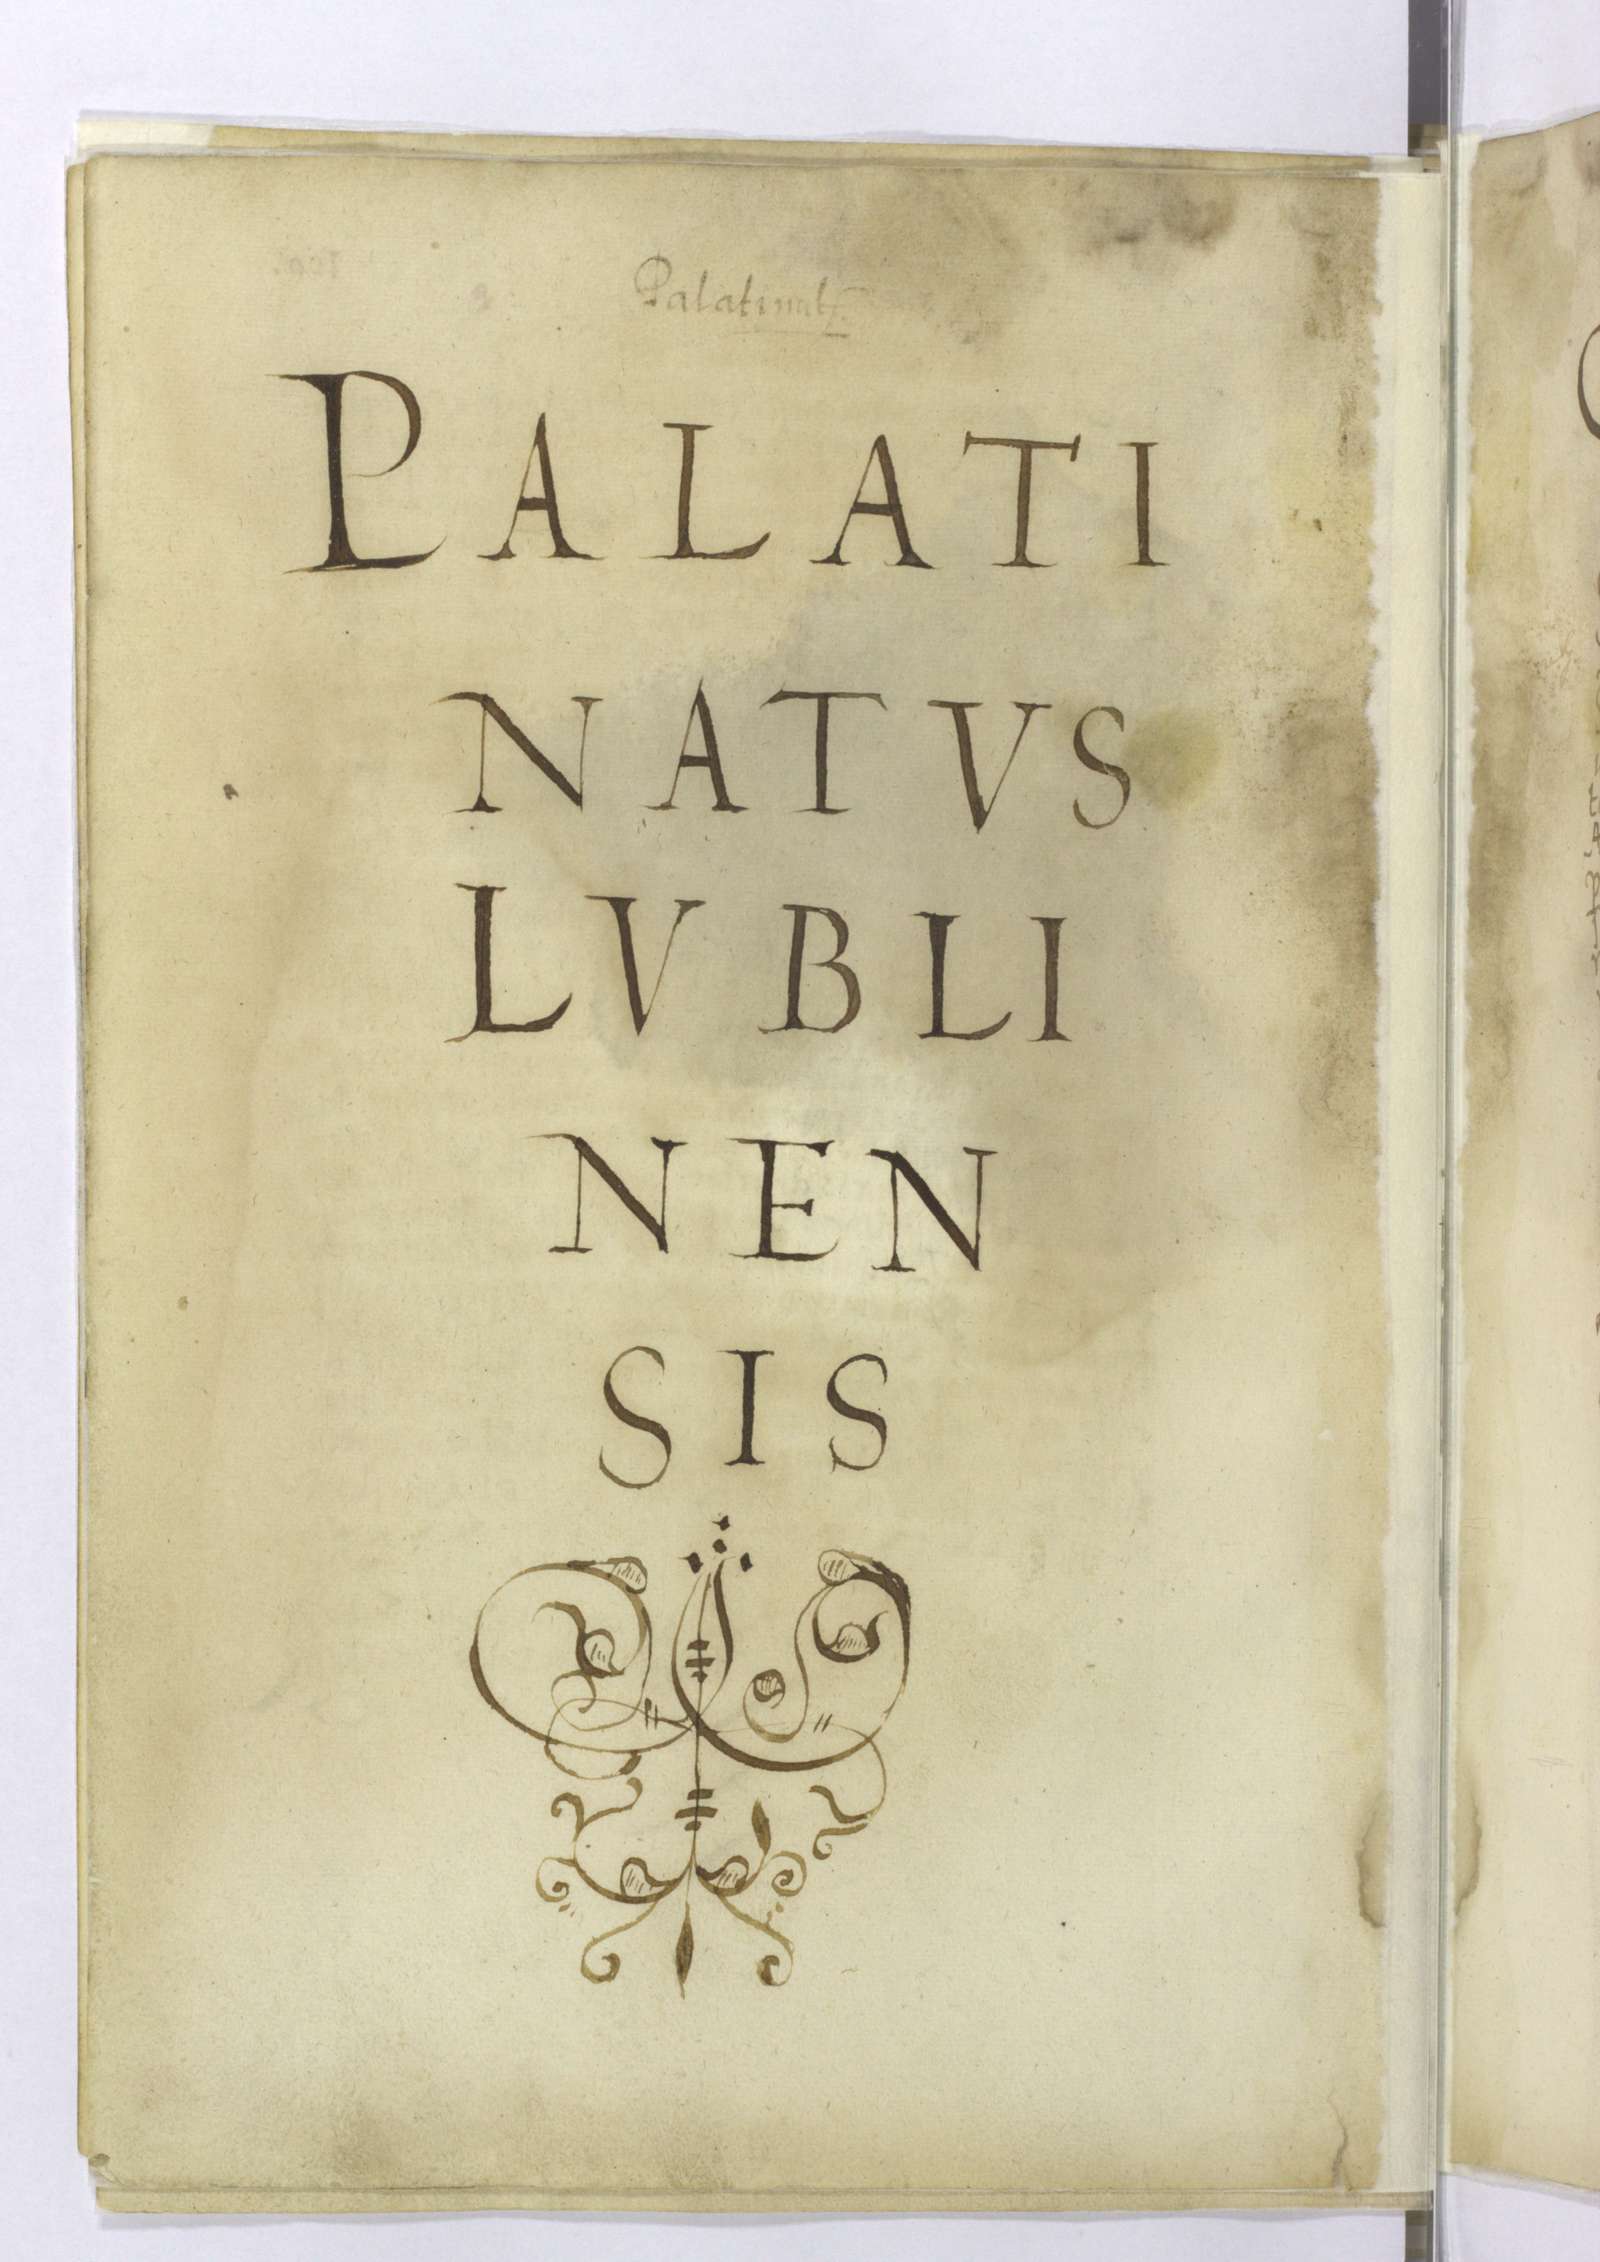 Palatinat9
PALATI
NATVS
LVBLI
NEN
SIS